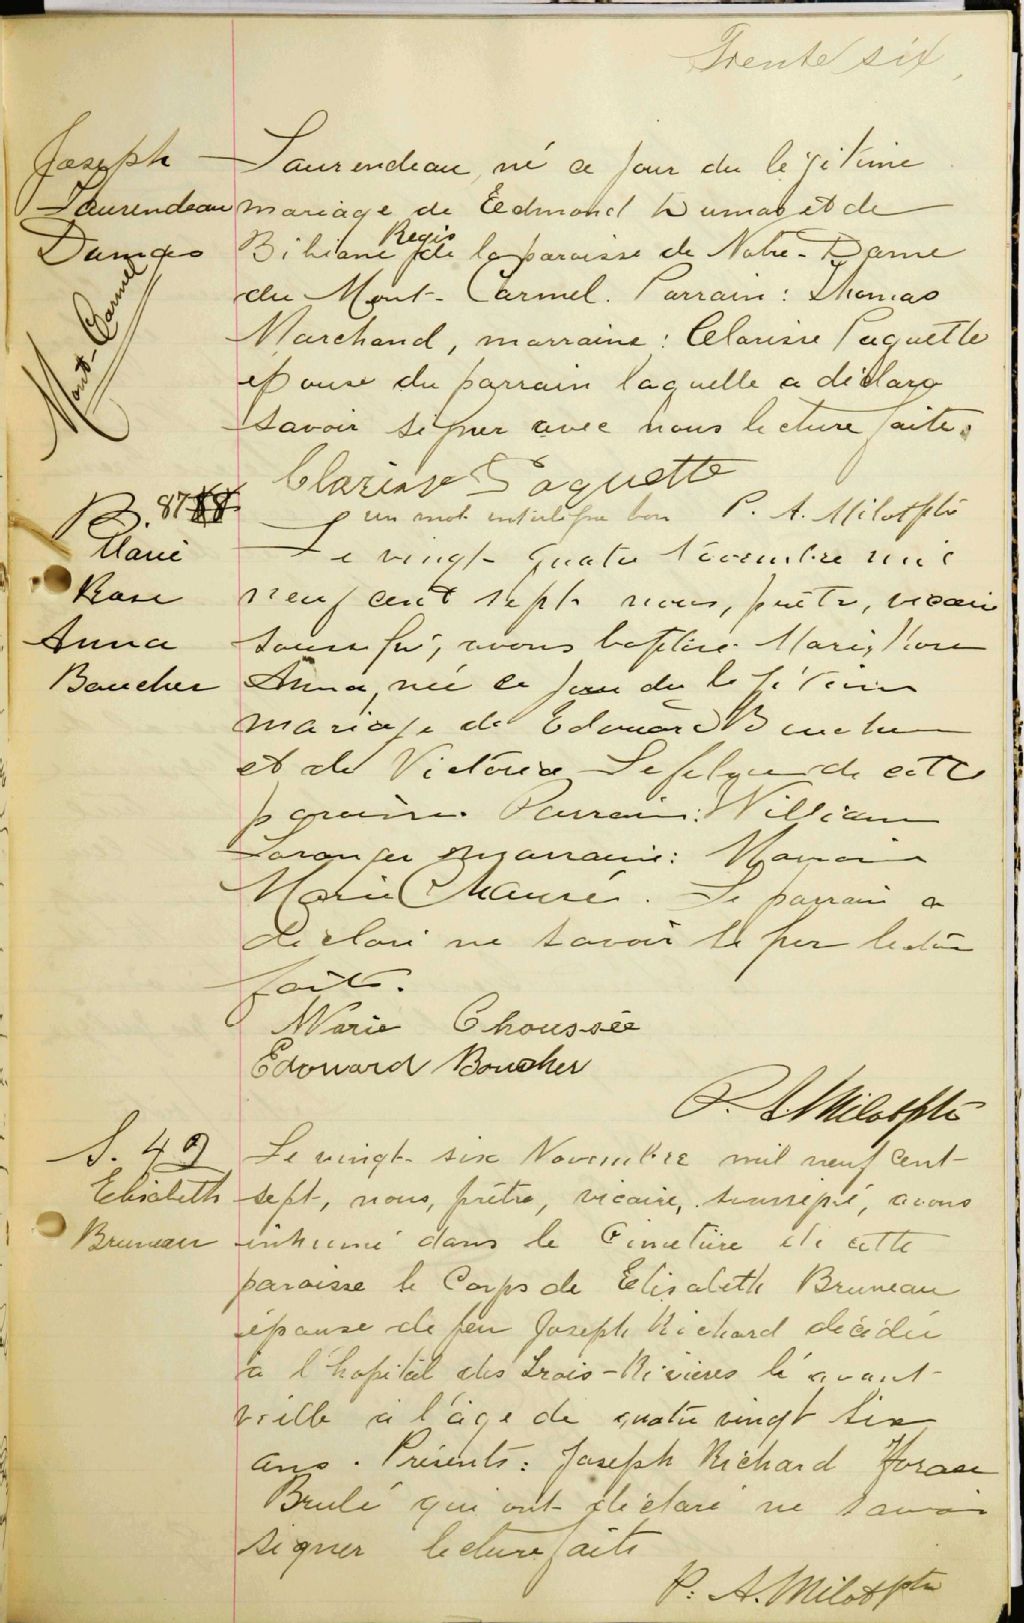 Trente six
Joseph
Laurendeau
Dumas
Mont-Carmel
Laurendeau, né ce jour du légitime
mariage de Eedmond Dumas et de
Bibiane Regis de la paroisse de Notre-Dame
du Mont-Carmel. Parrain: Thomas
Marchand, marraine: Clarisse Paquette
épouse du parrain laquelle a déclaré
savoir signer avec nous lecture faite.
Clarisse Paquette
un mot interligne bon P. A. Milot ptre
B. 87
Marie
Rose
Anna
Boucher
Le vingt-quatre Novembre mil
neuf cent sept nous, prêtre, vicaire
soussigné, avons baptisé Marie Rose
Anna, née ce jour du légitime
mariage de Edouard Boucher
et de Victoria de cette
paroisse. Parrain: William
Loranger marraine:
Marie Chaussé. Le parrain a
déclaré ne savoir signer lecture
faite.
Marie Choussée
Edouard Boucher
P. A. Milot ptre
S. 42
Elisabeth
Bruneau
Le vingt-six Novembre mil neuf cent-
sept, nous, prêtre, vicaire, soussigné, avons
inhumé dans le Cimetière de cette
paroisse le Corps de Elisabeth Bruneau
épouse de feu Joseph Richard décédée
à l'hopital des Trois-Rivières l'avant-
veille à l'âge de quatre vingt six
ans. Présents: Joseph Richard Horace
Brulé qui ont déclaré ne savoir
signer lecture faite
P. A. Milot ptre